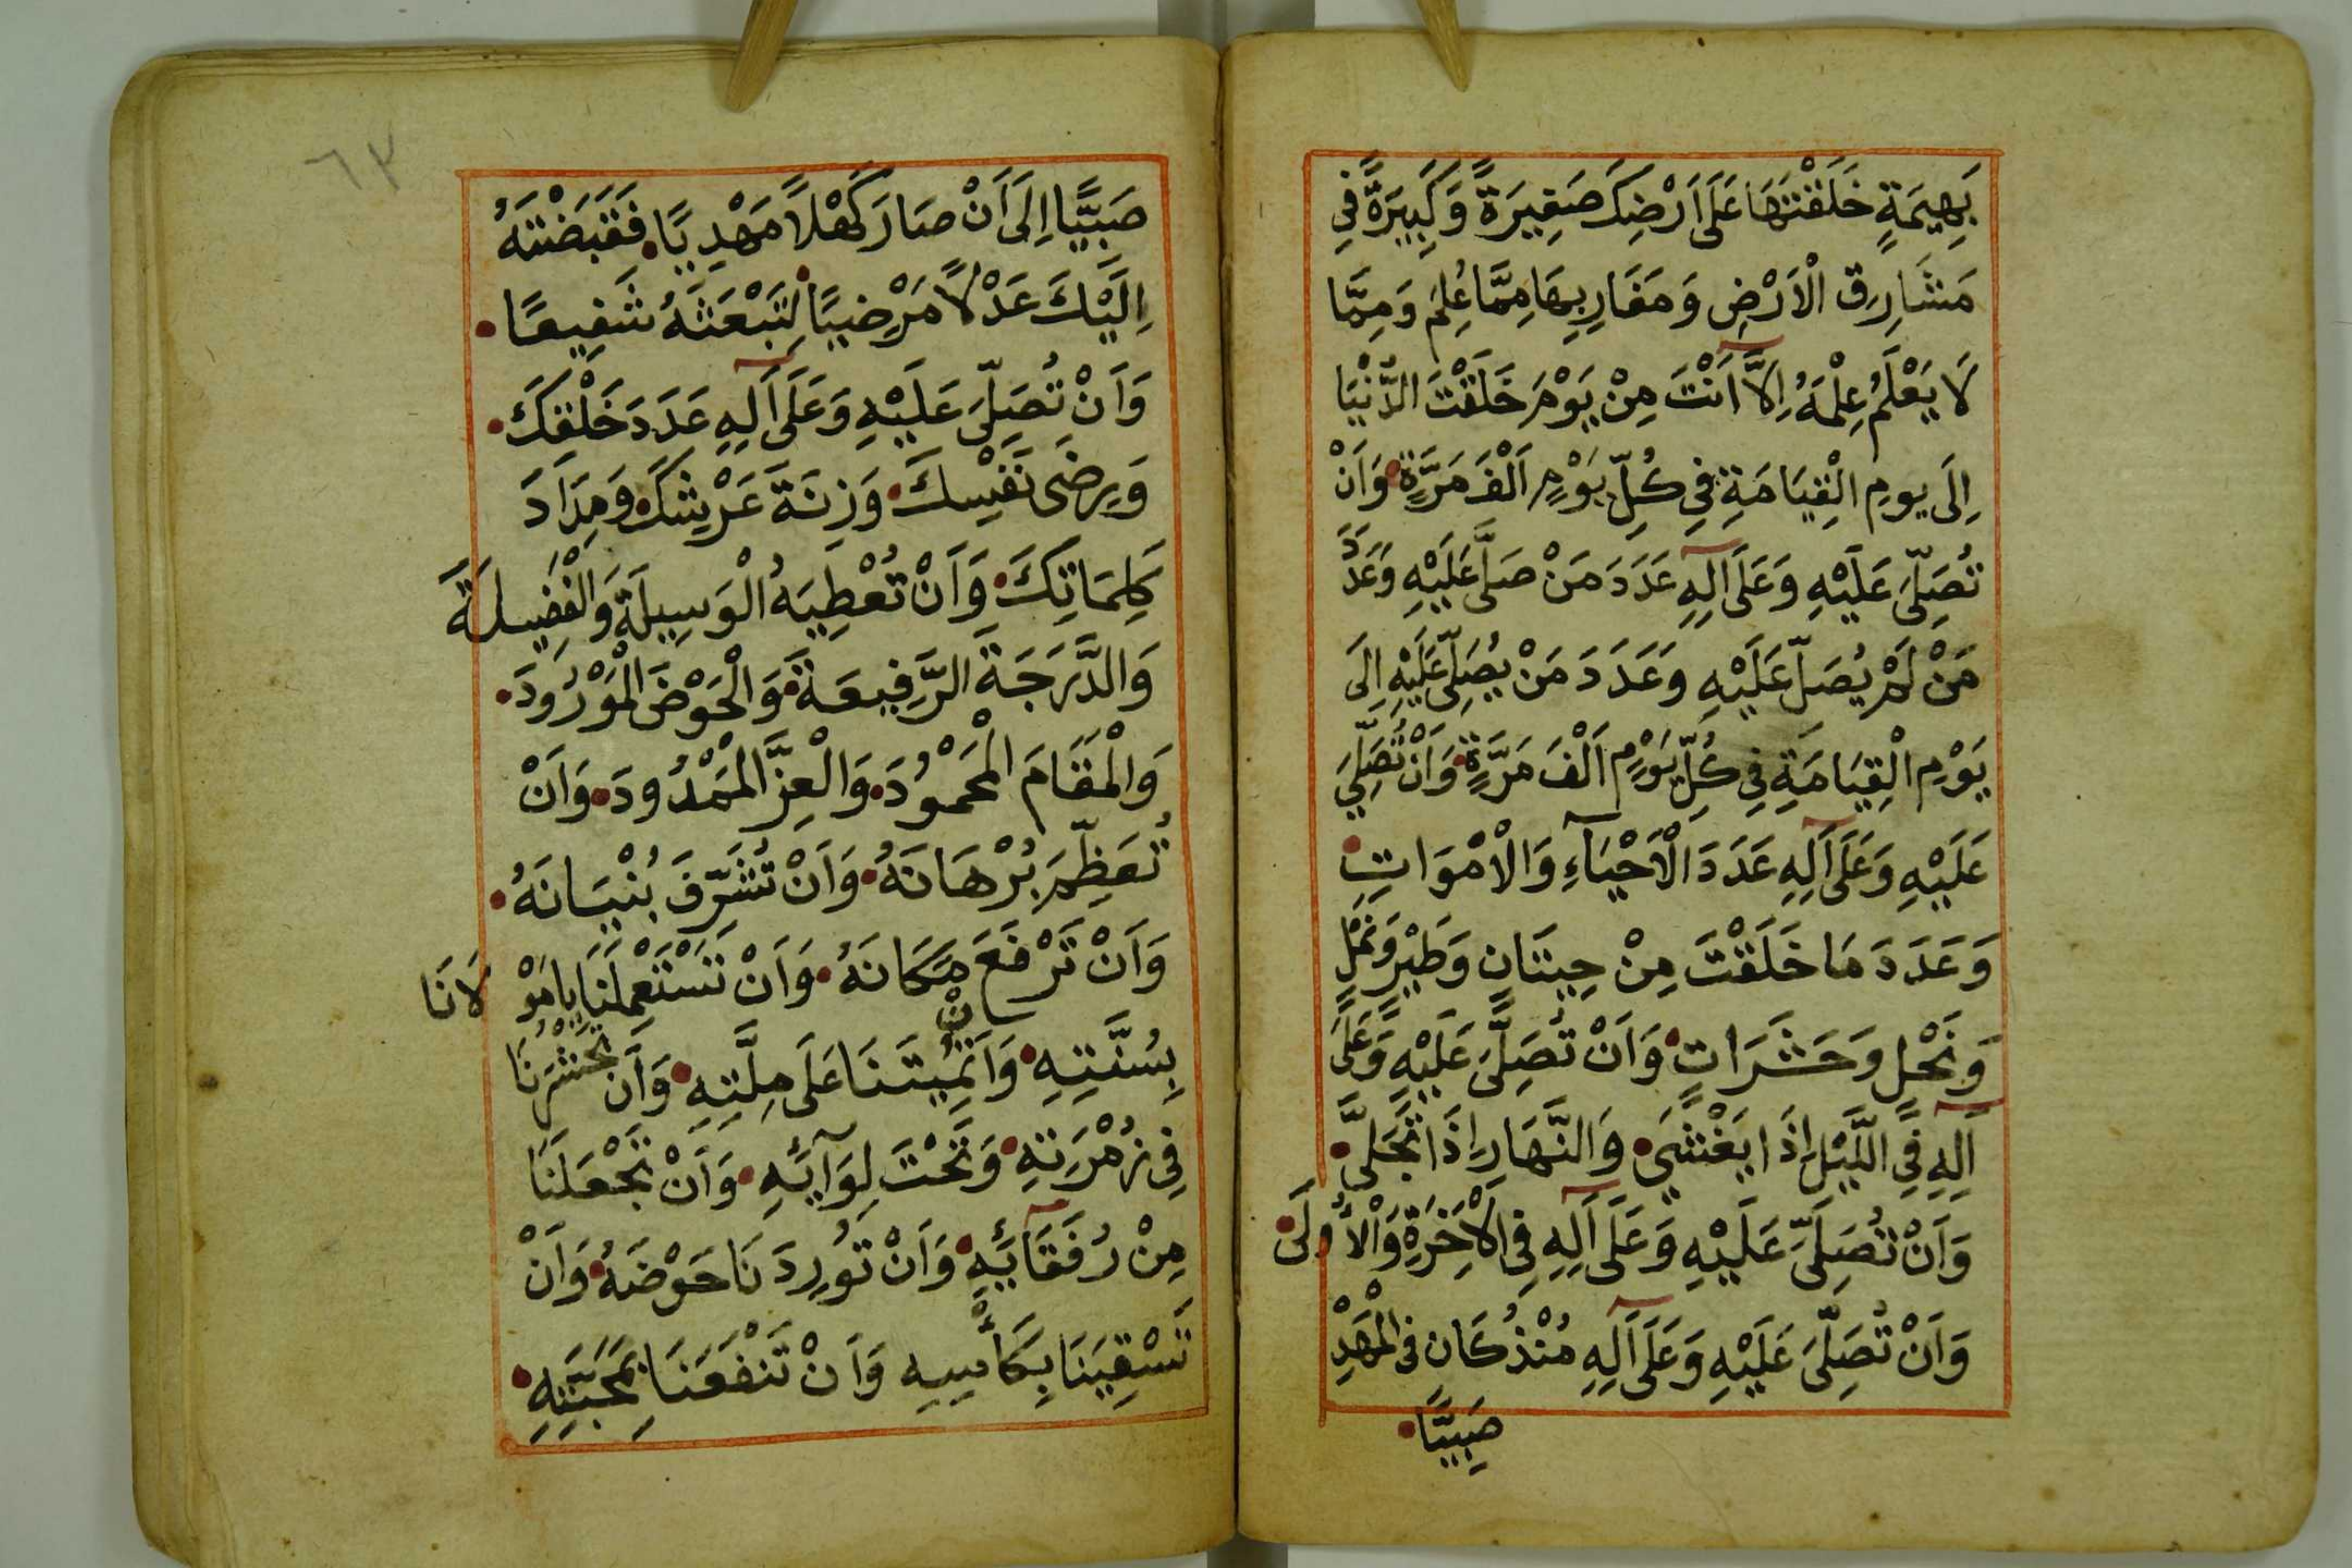 بَهِيمَةٍ خَلَقْتَهَا عَلَى اَرْضِكَ صَغِيرَةً وَكَبِيرَةً فِي
مَشَارِقِ الْاَرْضِ وَمَغَارِبِهَا مِمَّا عُلِمَ وَمِمَّا
لَا يَعْلَمُ عِلْمَهُ اِلَّا اَنْتَ مِنْ يَوْمَ خَلَقْتَ الدُّنْيَا
اِلَى يومِ الْقِيَامَةِ فِي كُلِّ يَوْمٍ اَلْفَ مَرَّةٍ وَاَنْ
تُصَلِّىَ عَلَيْهِ وَعَلَى آلِهِ عَدَدَ مَنْ صَلَّى عَلَيْهِ وَعَدَدَ
مَنْ لَمْ يُصَلِّ عَلَيْهِ وَعَدَدَ مَنْ يُصَلِّى عَلَيْهِ اِلَى
يَوْمِ الْقِيَامَةِ فِي كُلِّ يَوْمٍ اَلْفَ مَرَّةٍ وَاَنْ تُصَلِّيَ
عَلَيْهِ وَعَلَى آلِهِ عَدَدَ الْاَحْيَآءِ وَالْاَمْوَاتِ
وَعَدَدَ مَا خَلَقْتَ مِنْ حِيتَانٍ وَطَيْرٍ وَنَمْلٍ
وَنَحْلٍ وَحَشَرَاتٍ وَاَنْ تُصَلِّىَ عَلَيْهِ وَعَلَى
آلِهِ فِي اللَّيْلِ اِذَا يَغْشَى وَالنَّهَارِ اِذَا تَجَلَّى
وَاَنْ تُصَلِّىَ عَلَيْهِ وَعَلَى آلِهِ فِي الْاٰخِرَةِ وَالْاُولَى
وَاَنْ تُصَلِّىَ عَلَيْهِ وَعَلَى آلِهِ مُنْذُ كَانَ فِي الْمَهْدِ
صَبِيًّا
٦٣
صَبِيًّا اِلَى اَنْ صَارَ كَهْلًا مَهْدِيًّا فَقَبَضْتَهُ
اِلَيْكَ عَدْلًا مَرْضِيًّا لِتَبْعَثَهُ شَفِيعًا
وَاَنْ تُصَلِّىَ عَلَيْهِ وَعَلَى آلِهِ عَدَدَ خَلْقِكَ
وَرِضَى نَفْسِكَ وَزِنَةَ عَرْشِكَ وَمِدَادَ
كَلِمَاتِكَ وَاَنْ تُعْطِيَهُ الْوَسِيلَةَ وَالْفَضِيلَةَ
وَالدَّرَجَةَ الرَّفِيعَةَ وَالْحَوْضَ الْمَوْرُودَ
وَالْمَقَامَ الْمَحْمُودَ وَالْعِزَّ الْمَمْدُودَ وَاَنْ
تُعَظِّمَ بُرْهَانَهُ وَاَنْ تُشَرِّفَ بُنْيَانَهُ
وَاَنْ تَرْفَعَ مَكَانَهُ وَاَنْ تَسْتَعْمِلَنَا يَا مَوْلَانَا
بِسُنَّتِهِ وَاَنْ تُمِيتَنَا عَلَى مِلَّتِهِ وَاَنْ تَحْشُرَنَا
فِي زُمْرَتِهِ وَتَحْتَ لِوَآئِهِ وَاَنْ تَجْعَلَنَا
مِنْ رُفَقَآئِهِ وَاَنْ تُورِدَنَا حَوْضَهُ وَاَنْ
تَسْقِيَنَا بِكَأْسِهِ وَاَنْ تَنْفَعَنَا بِمَحَبَّتِهِ